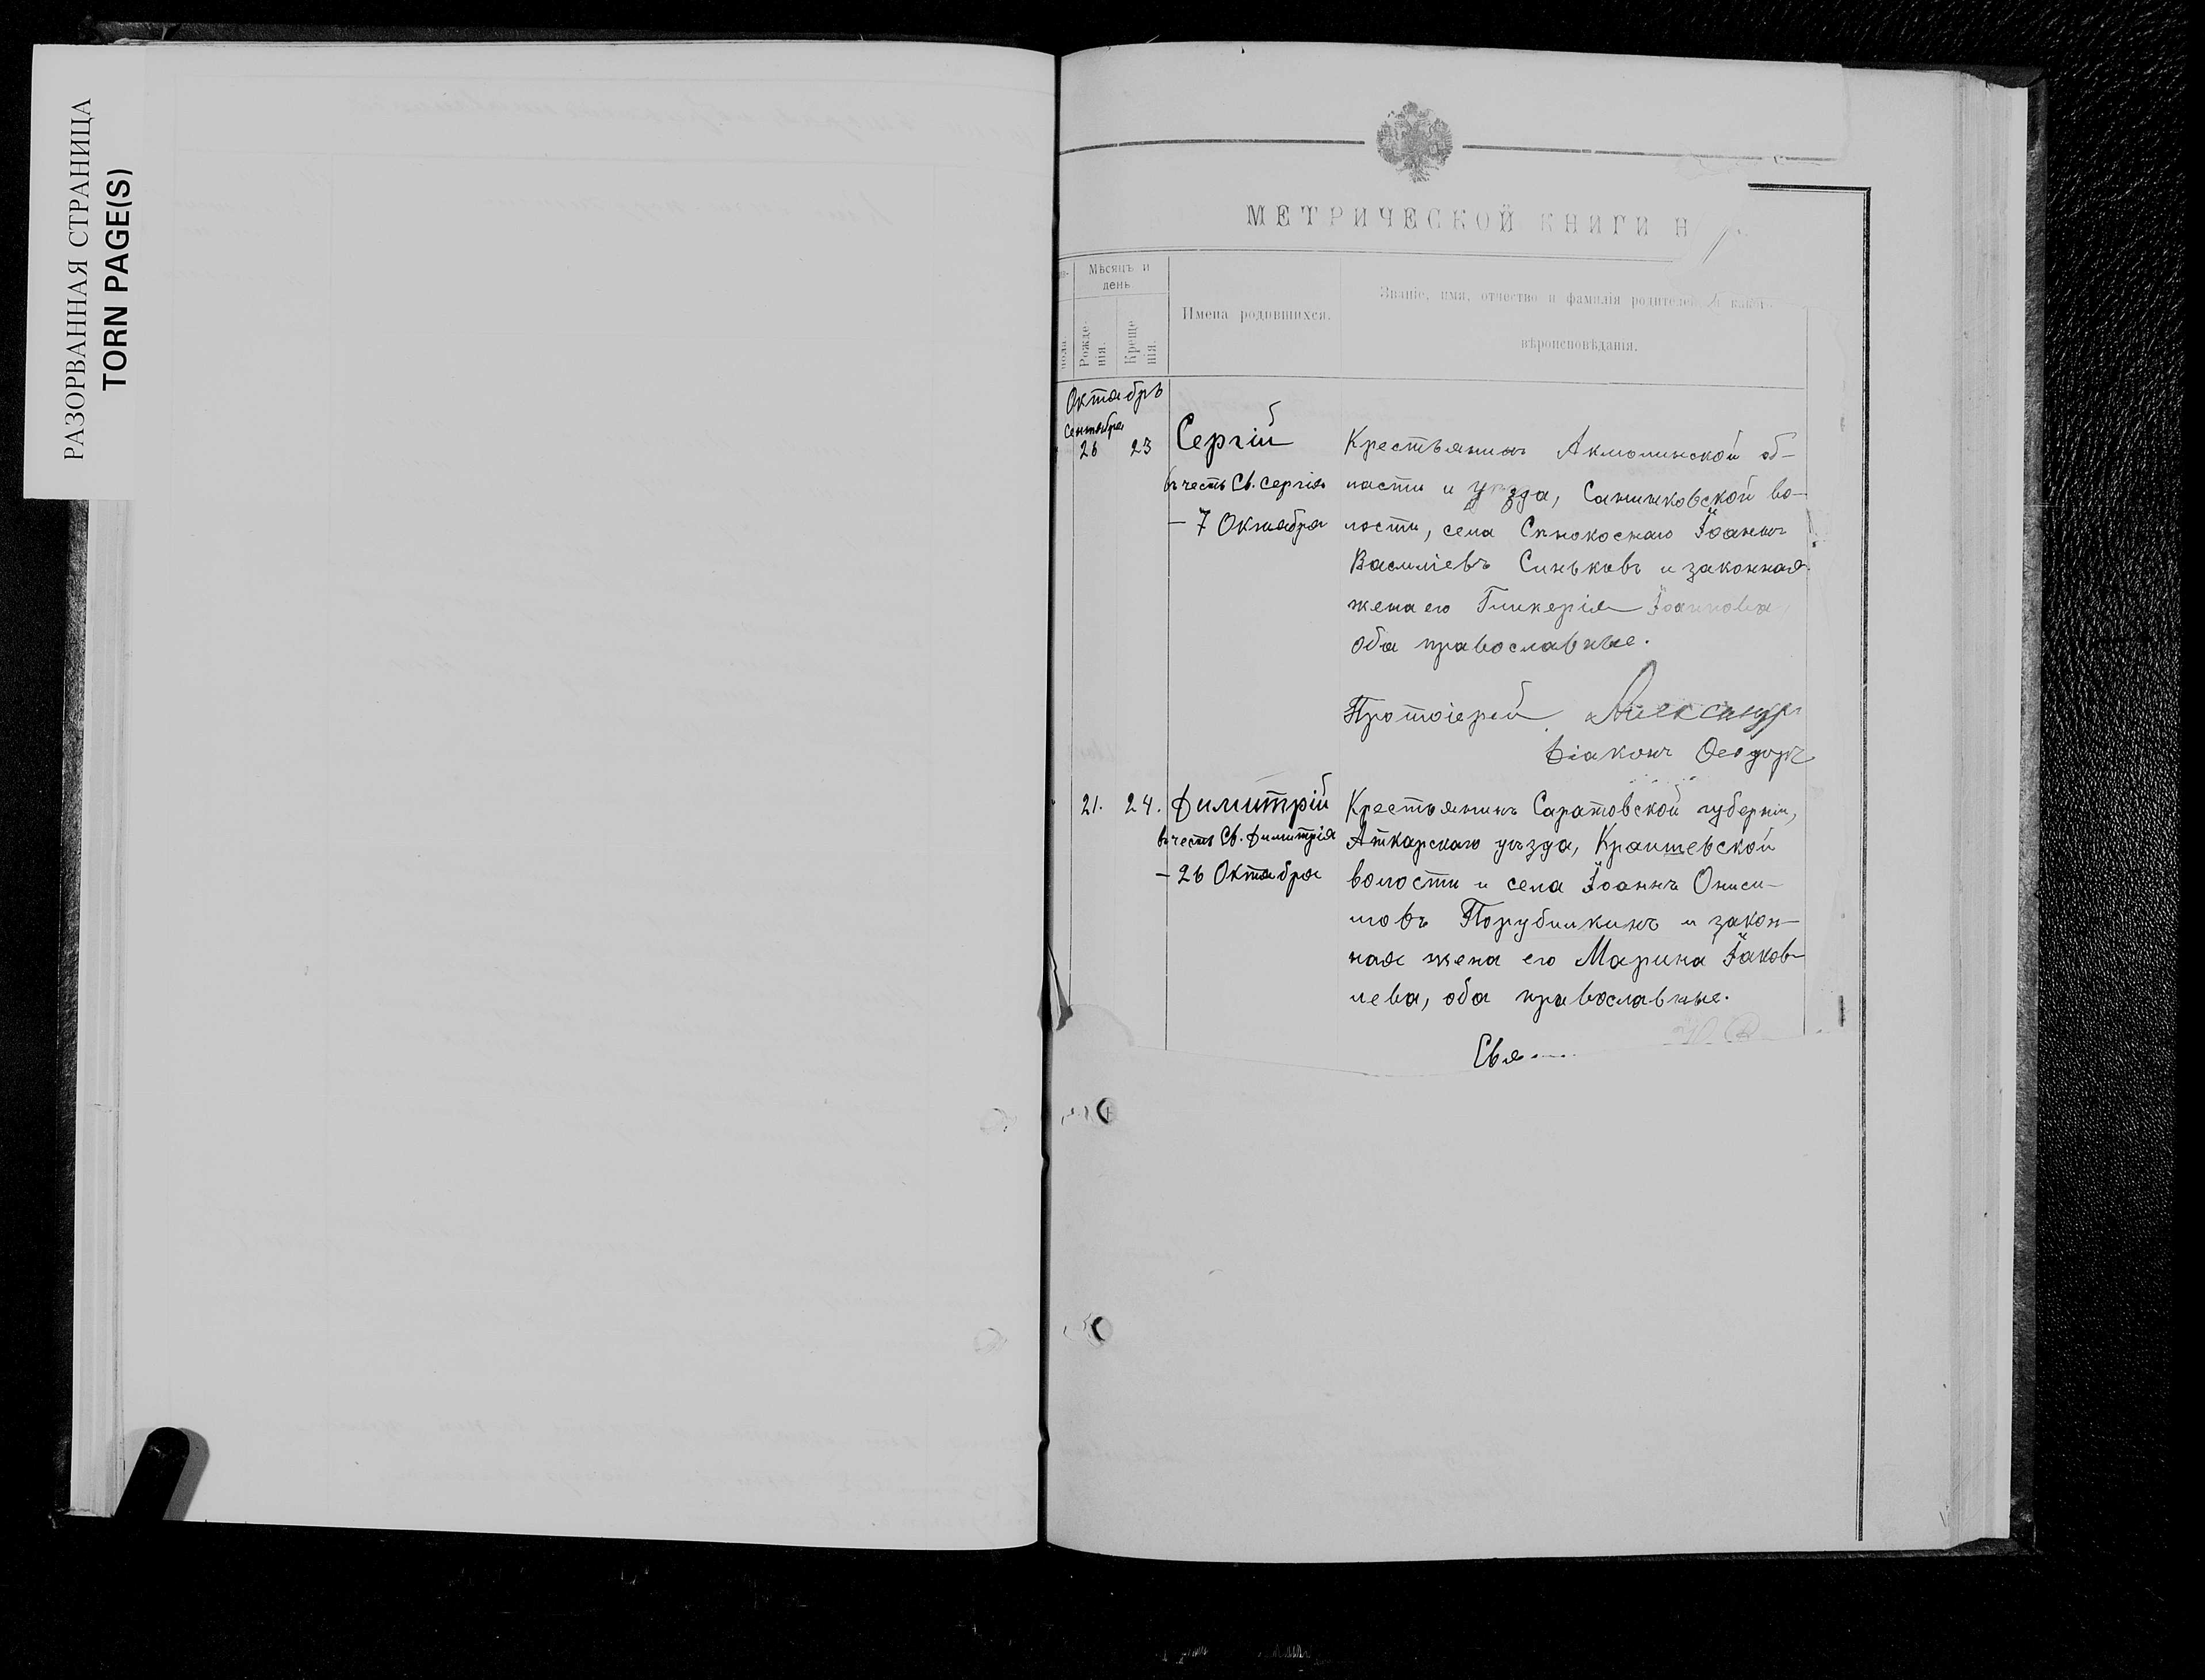 РАЗОРВАННАЯ СТРАНИЦА
TORN PAGE(S)
МЕТРИЧЕСКОЙ КНИГИ Н
Мѣсяцъ и
день
Рожде-
нія.
Креще
нія.
Имена родившихся.
Званіе, имя, отчество и фамилія родителей, и какого
вѣроисповѣданія.
Октябрь
Сентября
26 23
Сергій
въ честь Св. Сергія
– 7 Октября
Крестьянинъ Акмолинской об-
ласти и уѣзда, Санниковской во-
лости, села Сѣнокоснаго Іоаннъ
Василіевъ Синьковъ и законная
жена его Гликерія Іоаннова,
оба православные.
Протоіерей Александр
Діаконъ Ѳеодоръ
21. 24.
Димитрій
въ честь Св. Димитрія
– 26 Октября
Крестьянинъ Саратовской губерніи,
Аткарскаго уѣзда, Краишевской
волости и села Іоаннъ Ониси-
мовъ Порубилкинъ и закон-
ная жена его Марина Іаков-
лева, оба православные.
Свя